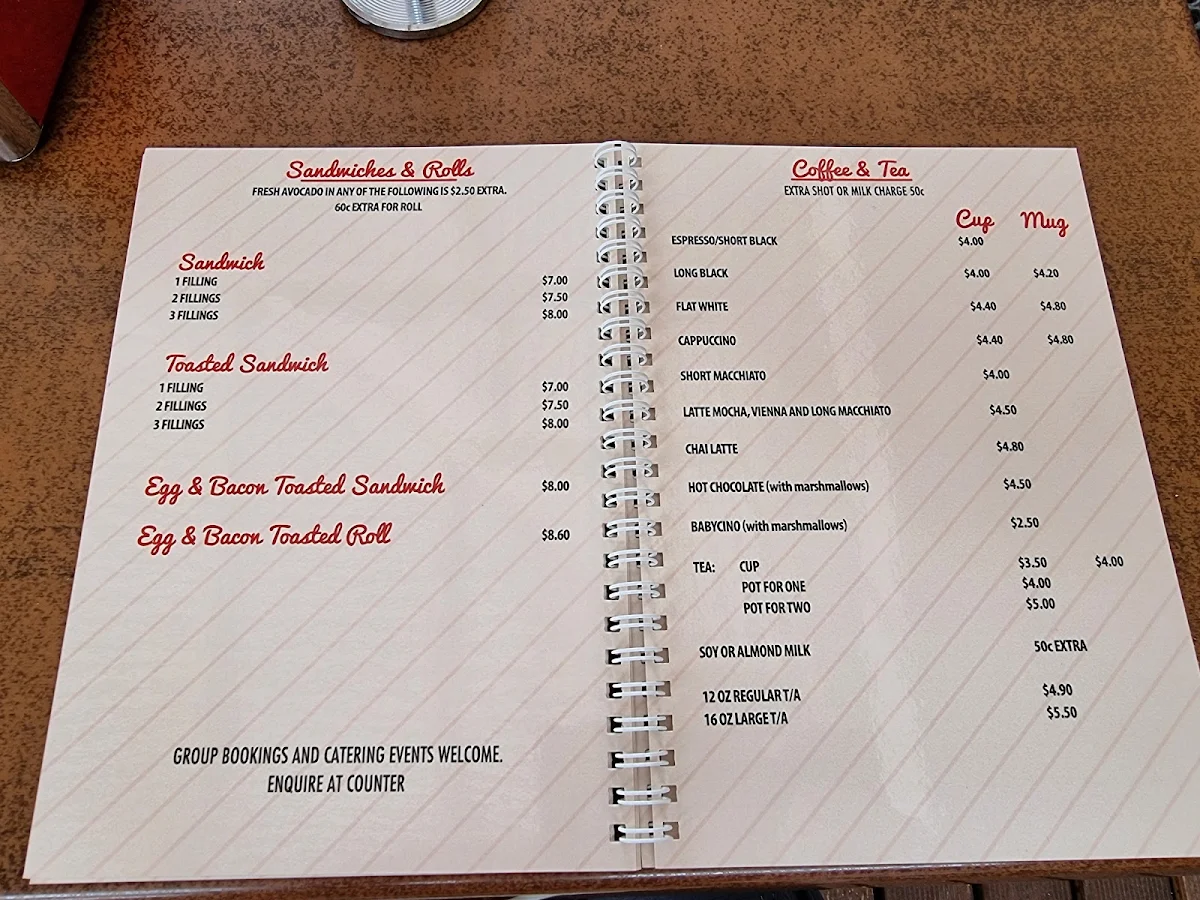 Sandwiches & Rolls
FRESH AVOCADO IN ANY OF THE FOLLOWING IS $2.50 EXTRA.
60c EXTRA FOR ROLL
Sandwich
1 FILLING $7.00
2 FILLINGS $7.50
3 FILLINGS $8.00
Toasted Sandwich
1 FILLING $7.00
2 FILLINGS $7.50
3 FILLINGS $8.00
Egg & Bacon Toasted Sandwich $8.00
Egg & Bacon Toasted Roll $8.60
GROUP BOOKINGS AND CATERING EVENTS WELCOME.
ENQUIRE AT COUNTER
Coffee & Tea
EXTRA SHOT OR MILK CHARGE 50c
Cup Mug
ESPRESSO/SHORT BLACK $4.00
LONG BLACK $4.00 $4.20
FLAT WHITE $4.40 $4.80
CAPPUCCINO $4.40 $4.80
SHORT MACCHIATO $4.00
LATTE MOCHA, VIENNA AND LONG MACCHIATO $4.50
CHAI LATTE $4.80
HOT CHOCOLATE (with marshmallows) $4.50
BABYCINO (with marshmallows) $2.50
TEA: CUP $3.50 $4.00
POT FOR ONE $4.00
POT FOR TWO $5.00
SOY OR ALMOND MILK 50c EXTRA
12 OZ REGULAR T/A $4.90
16 OZ LARGE T/A $5.50